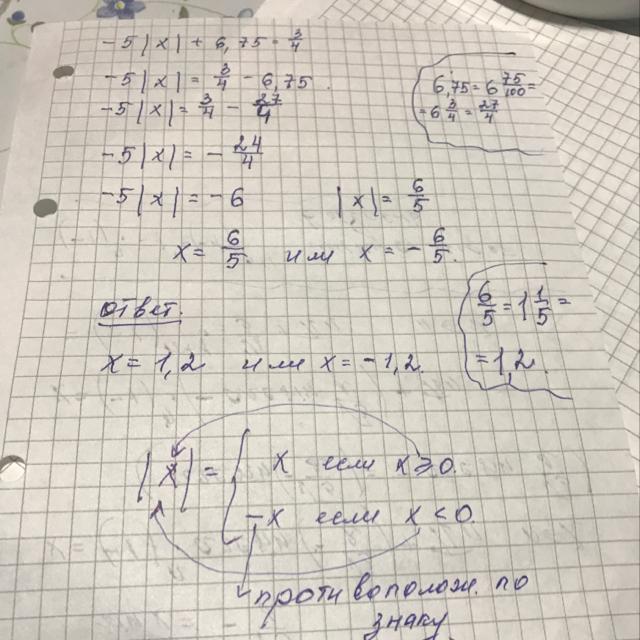 -5|x| + 6,75 = 3/4
-5|x| = 3/4 - 6,75
-5|x| = 3/4 - 27/4
6,75 = 6 75/100 =
= 6 3/4 = 27/4
-5|x| = - 24/4
-5|x| = -6
|x| = 6/5
x = 6/5 или x = - 6/5.
ответ:
x = 1,2 или x = -1,2.
6/5 = 1 1/5 =
= 1,2.
|x| = { x если x ≥ 0.
-x если x < 0.
противополож. по
знаку